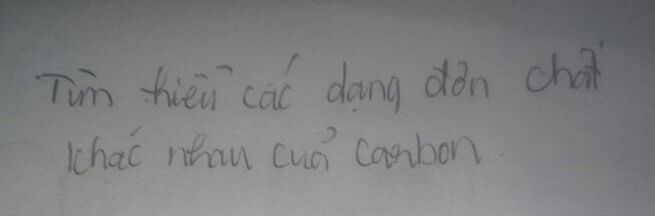 Tìm hiểu các dạng đơn chất
khác nhau của carbon.